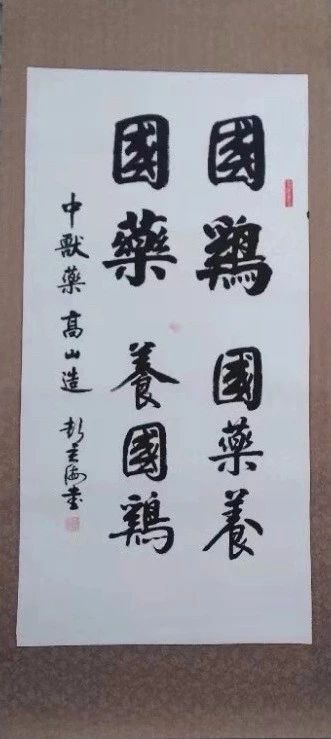 國鷄
國藥
國藥養
養國鷄
中獸藥高山造